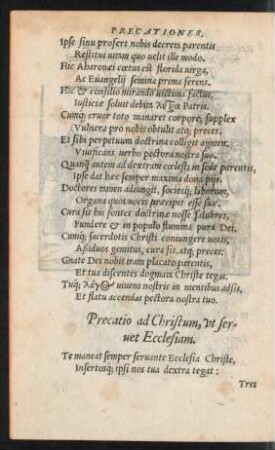 PRECATIONES.
Ipse sinu profert nobis decreta parentis
Restitui uitam quo uelit ille modo.
Hic Aharonei cœtus est florida uirga,
Ac Euangelij semina prima serens.
Hic & consilio mirando uictima factus,
Iusticiæ soluit debita λύτρα Patris.
Cumq; cruor toto manaret corpore, supplex
Vulnera pro nobis obtulit atq; preces.
Et sibi perpetuum doctrina colligit agmen,
Viuificans uerbo pectora nostra suo.
Quanq̃ autem ad dextram cœlesti in sede parentis,
Ipse dat hæc semper maxima dona pijs.
Doctores tamen adiungit, sociosq; laborum,
Organa quos uocis præcipit esse suæ.
Cura sit his fontes doctrinæ nosse salubres,
Fundere & in populo flumina pura Dei.
Cumq; sacerdotis Christi coniungere uotis,
Assiduos gemitus, cura sit, atq; preces:
Gnate Dei nobis iram placato parentis,
Et tua discentes dogmata Christe tegas.
Tuq; λόγος uiuens nostris in mentibus adsis,
Et flatu accendas pectora nostra tuo.
Precatio ad Christum, vt ser-
uet Ecclesiam.
Te maneat semper seruante Ecclesia Christe,
Insertosq; ipsi nos tua dextra tegat:
Tres